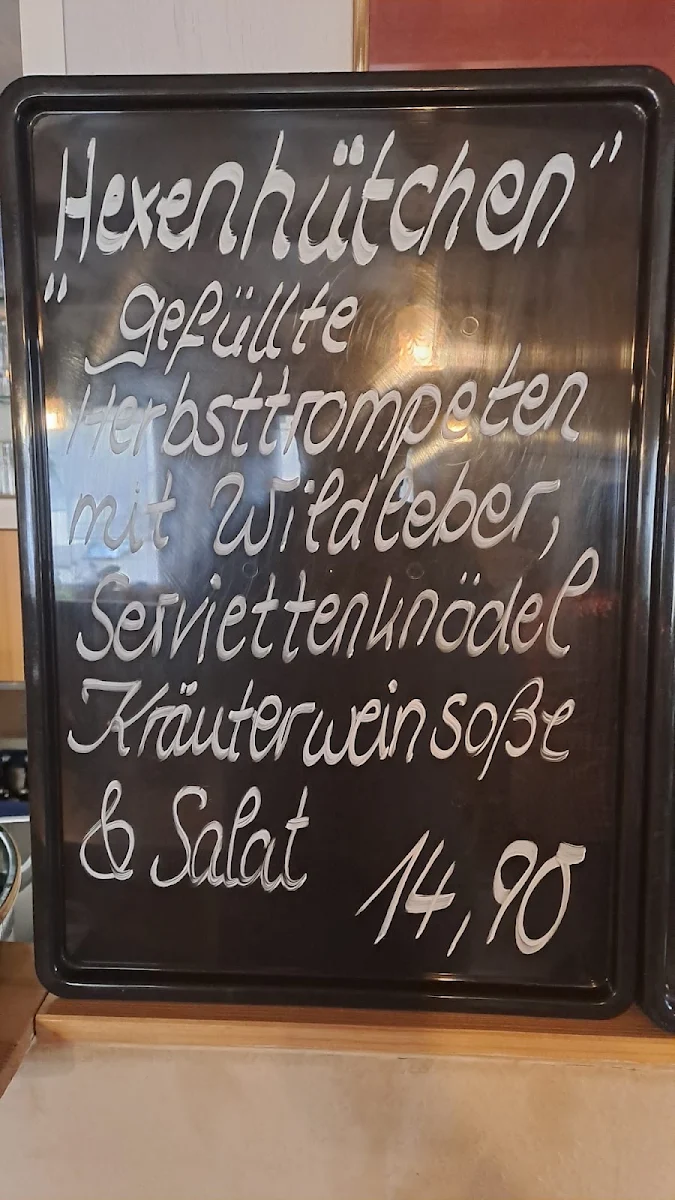 „Hexenhütchen"
gefüllte
Herbsttrompeten
mit Wildleber,
Serviettenknödel
Kräuterweinsoße
& Salat
14,90